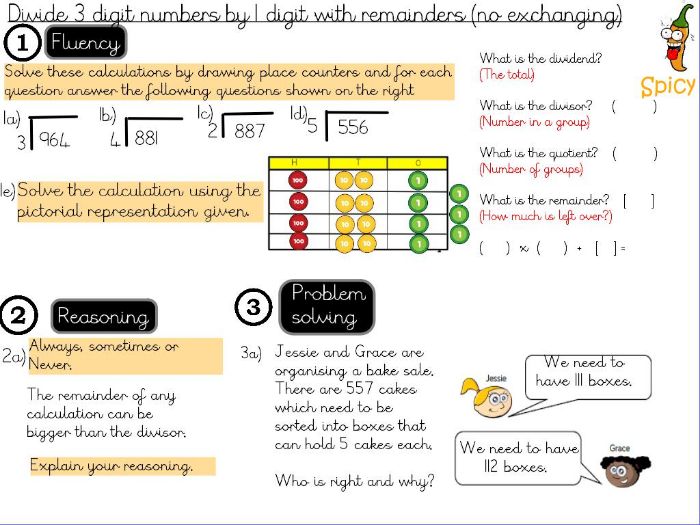 Divide 3 digit numbers by 1 digit with remainders (no exchanging)
1 Fluency
Solve these calculations by drawing place counters and for each
question answer the following questions shown on the right
1a) 3 964
1b) 4 881
1c) 2 887
1d) 5 556
What is the dividend?
(The total)
What is the divisor? ( )
(Number in a group)
What is the quotient? ( )
(Number of groups)
What is the remainder? [ ]
(How much is left over?)
( ) x ( ) + [ ] =
Spicy
1e) Solve the calculation using the
pictorial representation given.
H T O
100 10 10 1
100 10 10 1
100 10 10 1
100 10 10 1
1
1
1
2 Reasoning
2a) Always, sometimes or
Never.
The remainder of any
calculation can be
bigger than the divisor.
Explain your reasoning.
3 Problem
solving
3a) Jessie and Grace are
organising a bake sale.
There are 557 cakes
which need to be
sorted into boxes that
can hold 5 cakes each.
Who is right and why?
Jessie
We need to
have 111 boxes.
Grace
We need to have
112 boxes.